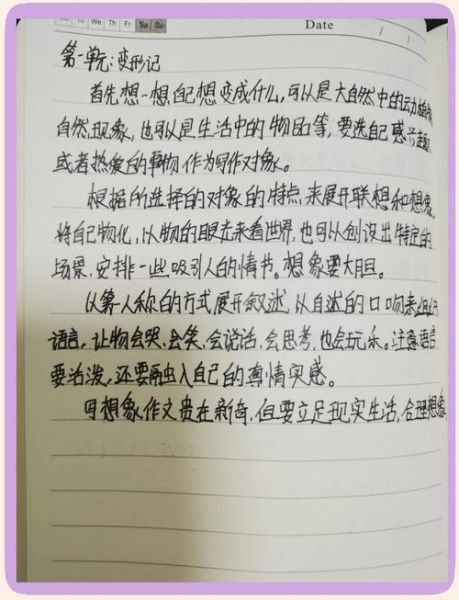 Tu We Th Fr Sa Su
Date / /
第一单元:变形记
首先想一想自己想变成什么,可以是大自然中的动植物
自然现象,也可以是生活中的物品等,要选自己感兴趣
或者热爱的事物作为写作对象。
根据所选择的对象的特点来展开联想和想象,
将自己物化,以物的眼光来看世界,也可以创设出特定的
场景,安排一些吸引人的情节。想象要大胆。
以第一人称的方式展开叙述,以自述的口吻来组织
语言,让物会哭,会笑,会说话,会思考,也会玩乐。注意语言
要活泼,还要融入自己的真情实感。
写想象作文贵在新奇,但要立足现实生活,合理想象